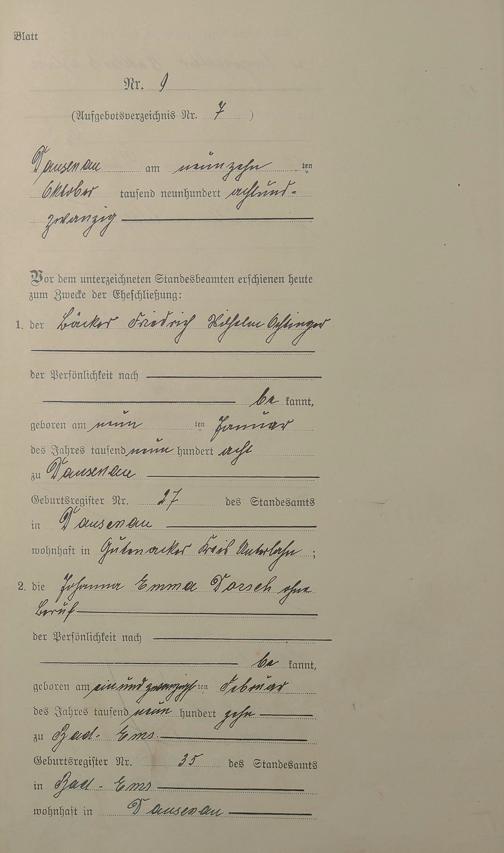 Blatt
Nr. 9
(Aufgebotsverzeichnis Nr. 7 )
Dausenau am neunzehn ten
Oktober tausend neunhundert achtund-
zwanzig
Vor dem unterzeichneten Standesbeamten erschienen heute
zum Zwecke der Eheschließung:
1. der Bäcker Friedrich Wilhelm
der Persönlichkeit nach
be kannt,
geboren am neun ten Januar
des Jahres tausend neun hundert acht
zu Dausenau
Geburtsregister Nr. 27 des Standesamts
in Dausenau
wohnhaft in Gutenacker Kreis Unterlahn ;
2. die Johanna Emma Dorsch ohne
Beruf
der Persönlichkeit nach
be kannt,
geboren am einundzwanzigst ten Februar
des Jahres tausend neun hundert zehn
zu Bad-Ems.
Geburtsregister Nr. 35 des Standesamts
in Bad-Ems
wohnhaft in Dausenau